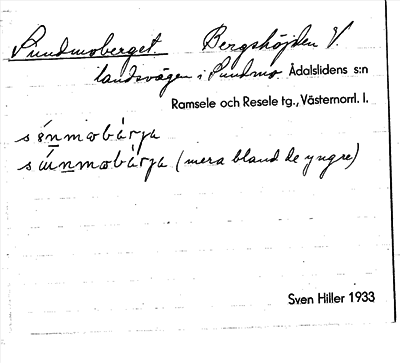 Sundmoberget. Bergshöjden V.
landsvägen i Sundmo Ådalslidens s:n
Ramsele och Resele tg., Västernorrl. l.
(mera bland de yngre)
Sven Hiller 1933